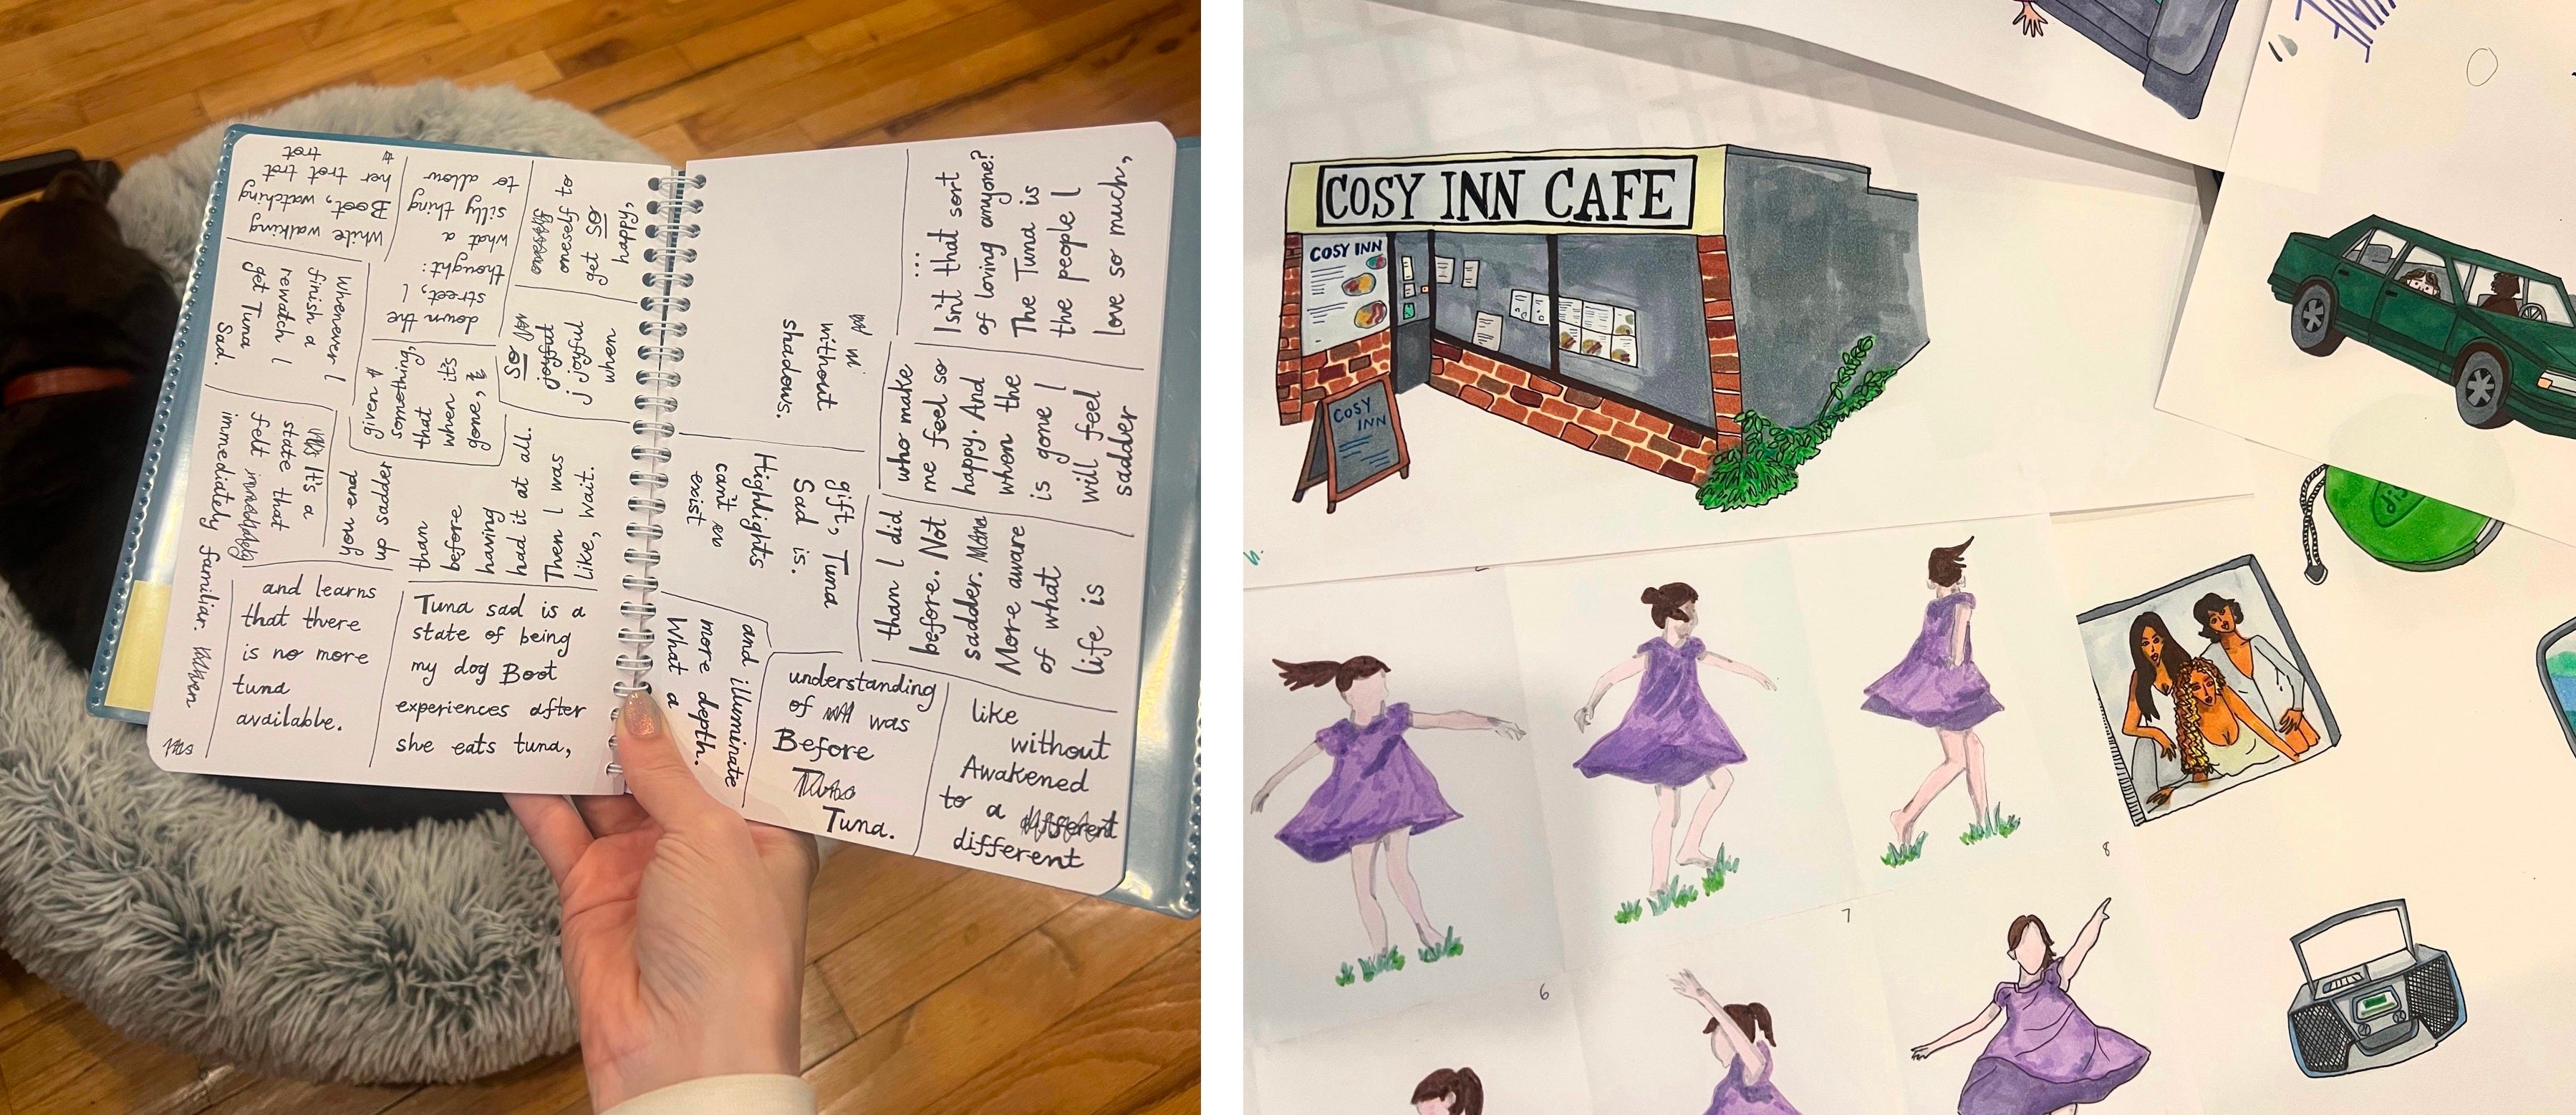 Tuna sad is a
state of being
my dog Boot
experiences after
she eats tuna,
and learns
that there
is no more
tuna
available.
It's a
state that
felt
immediately familiar.
Whenever I
finish a
rewatch I
get Tuna
Sad.
While walking
Boot, watching
her trot trot
trot
down the
street, I
thought:
what a
silly thing
to allow
oneself to
get SO
happy,
SO
joyful
joyful
when
given
something,
that
when it's
gone,
you end
up sadder
than
before
having
had it at all.
Then I was
like, wait.
...
Isn't that sort
of loving anyone?
The Tuna is
the people I
love so much,
who make
me feel so
happy. And
when the
is gone I
will feel
sadder
than I did
before. Not
sadder.
More aware
of what
life is
like
without
Awakened
to a
different
understanding
of was
Before
Tuna.
and illuminate
more depth.
What a
gift, Tuna
Sad is.
Highlights
can't
exist
without
shadows.
COSY INN CAFE
COSY INN
COSY
INN
6
7
8